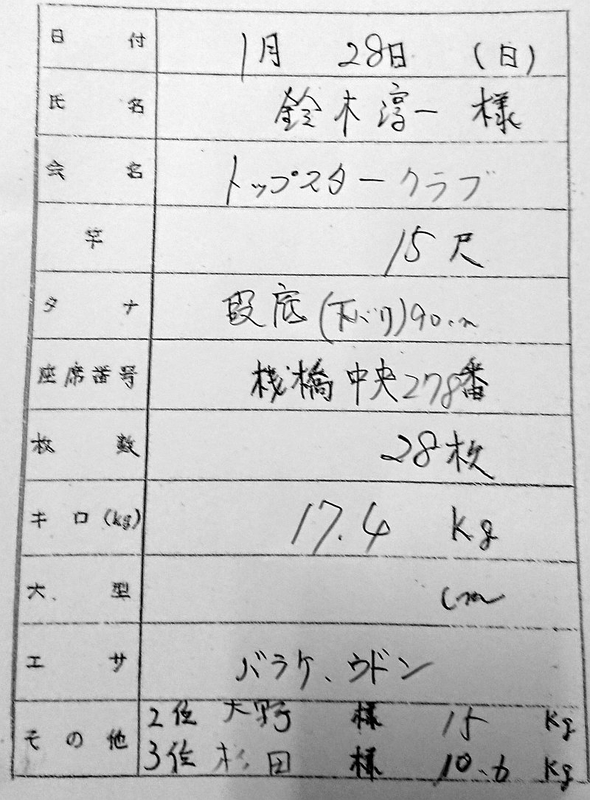 日付 1月 28日 (日)
氏名 鈴木淳一 様
会名 トップスタークラブ
竿 15尺
タナ 段底(下バリ)90cm
座席番号 桟橋中央278番
枚数 28枚
キロ(kg) 17.4 Kg
大型 cm
エサ バラケ、ウドン
その他 2位 大野 様 15 Kg
3位 杉田 様 10.6 Kg